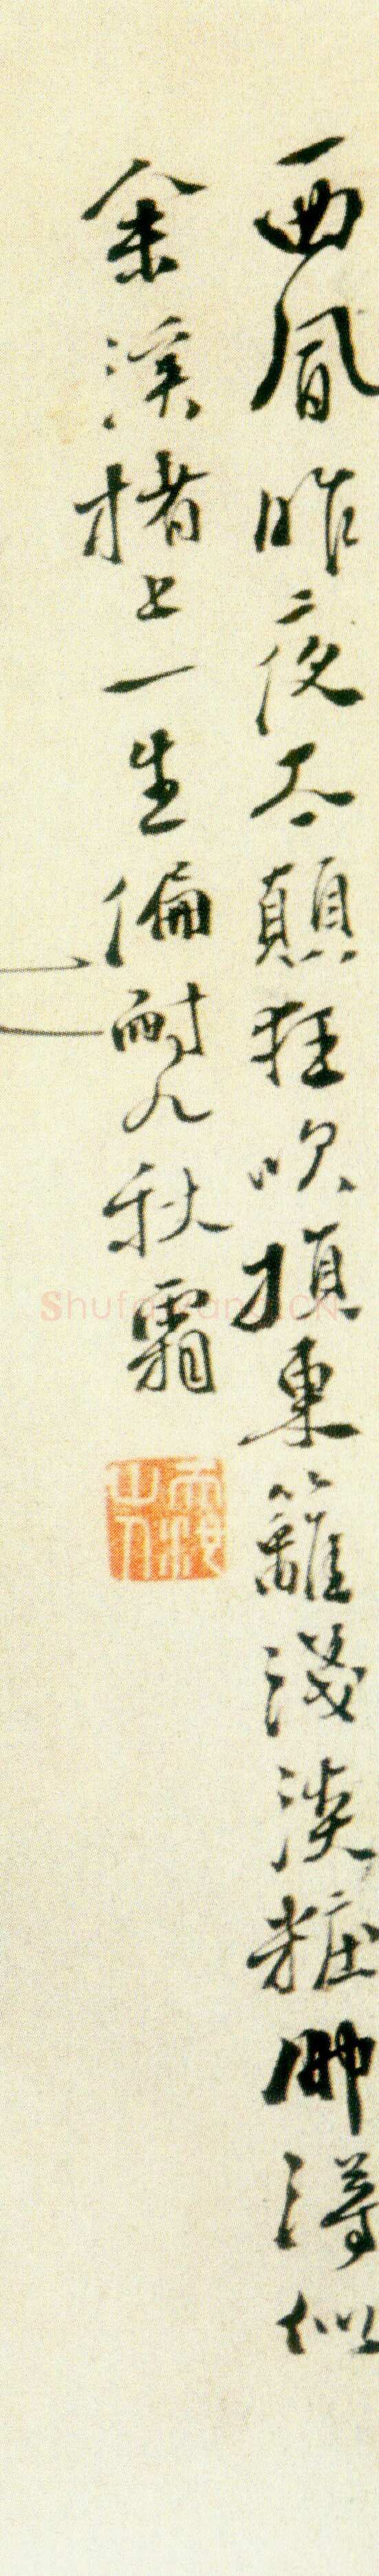 西風昨夜太顛狂吹損東籬淺淡粧那得似
余溪楮上一生偏耐九秋霜